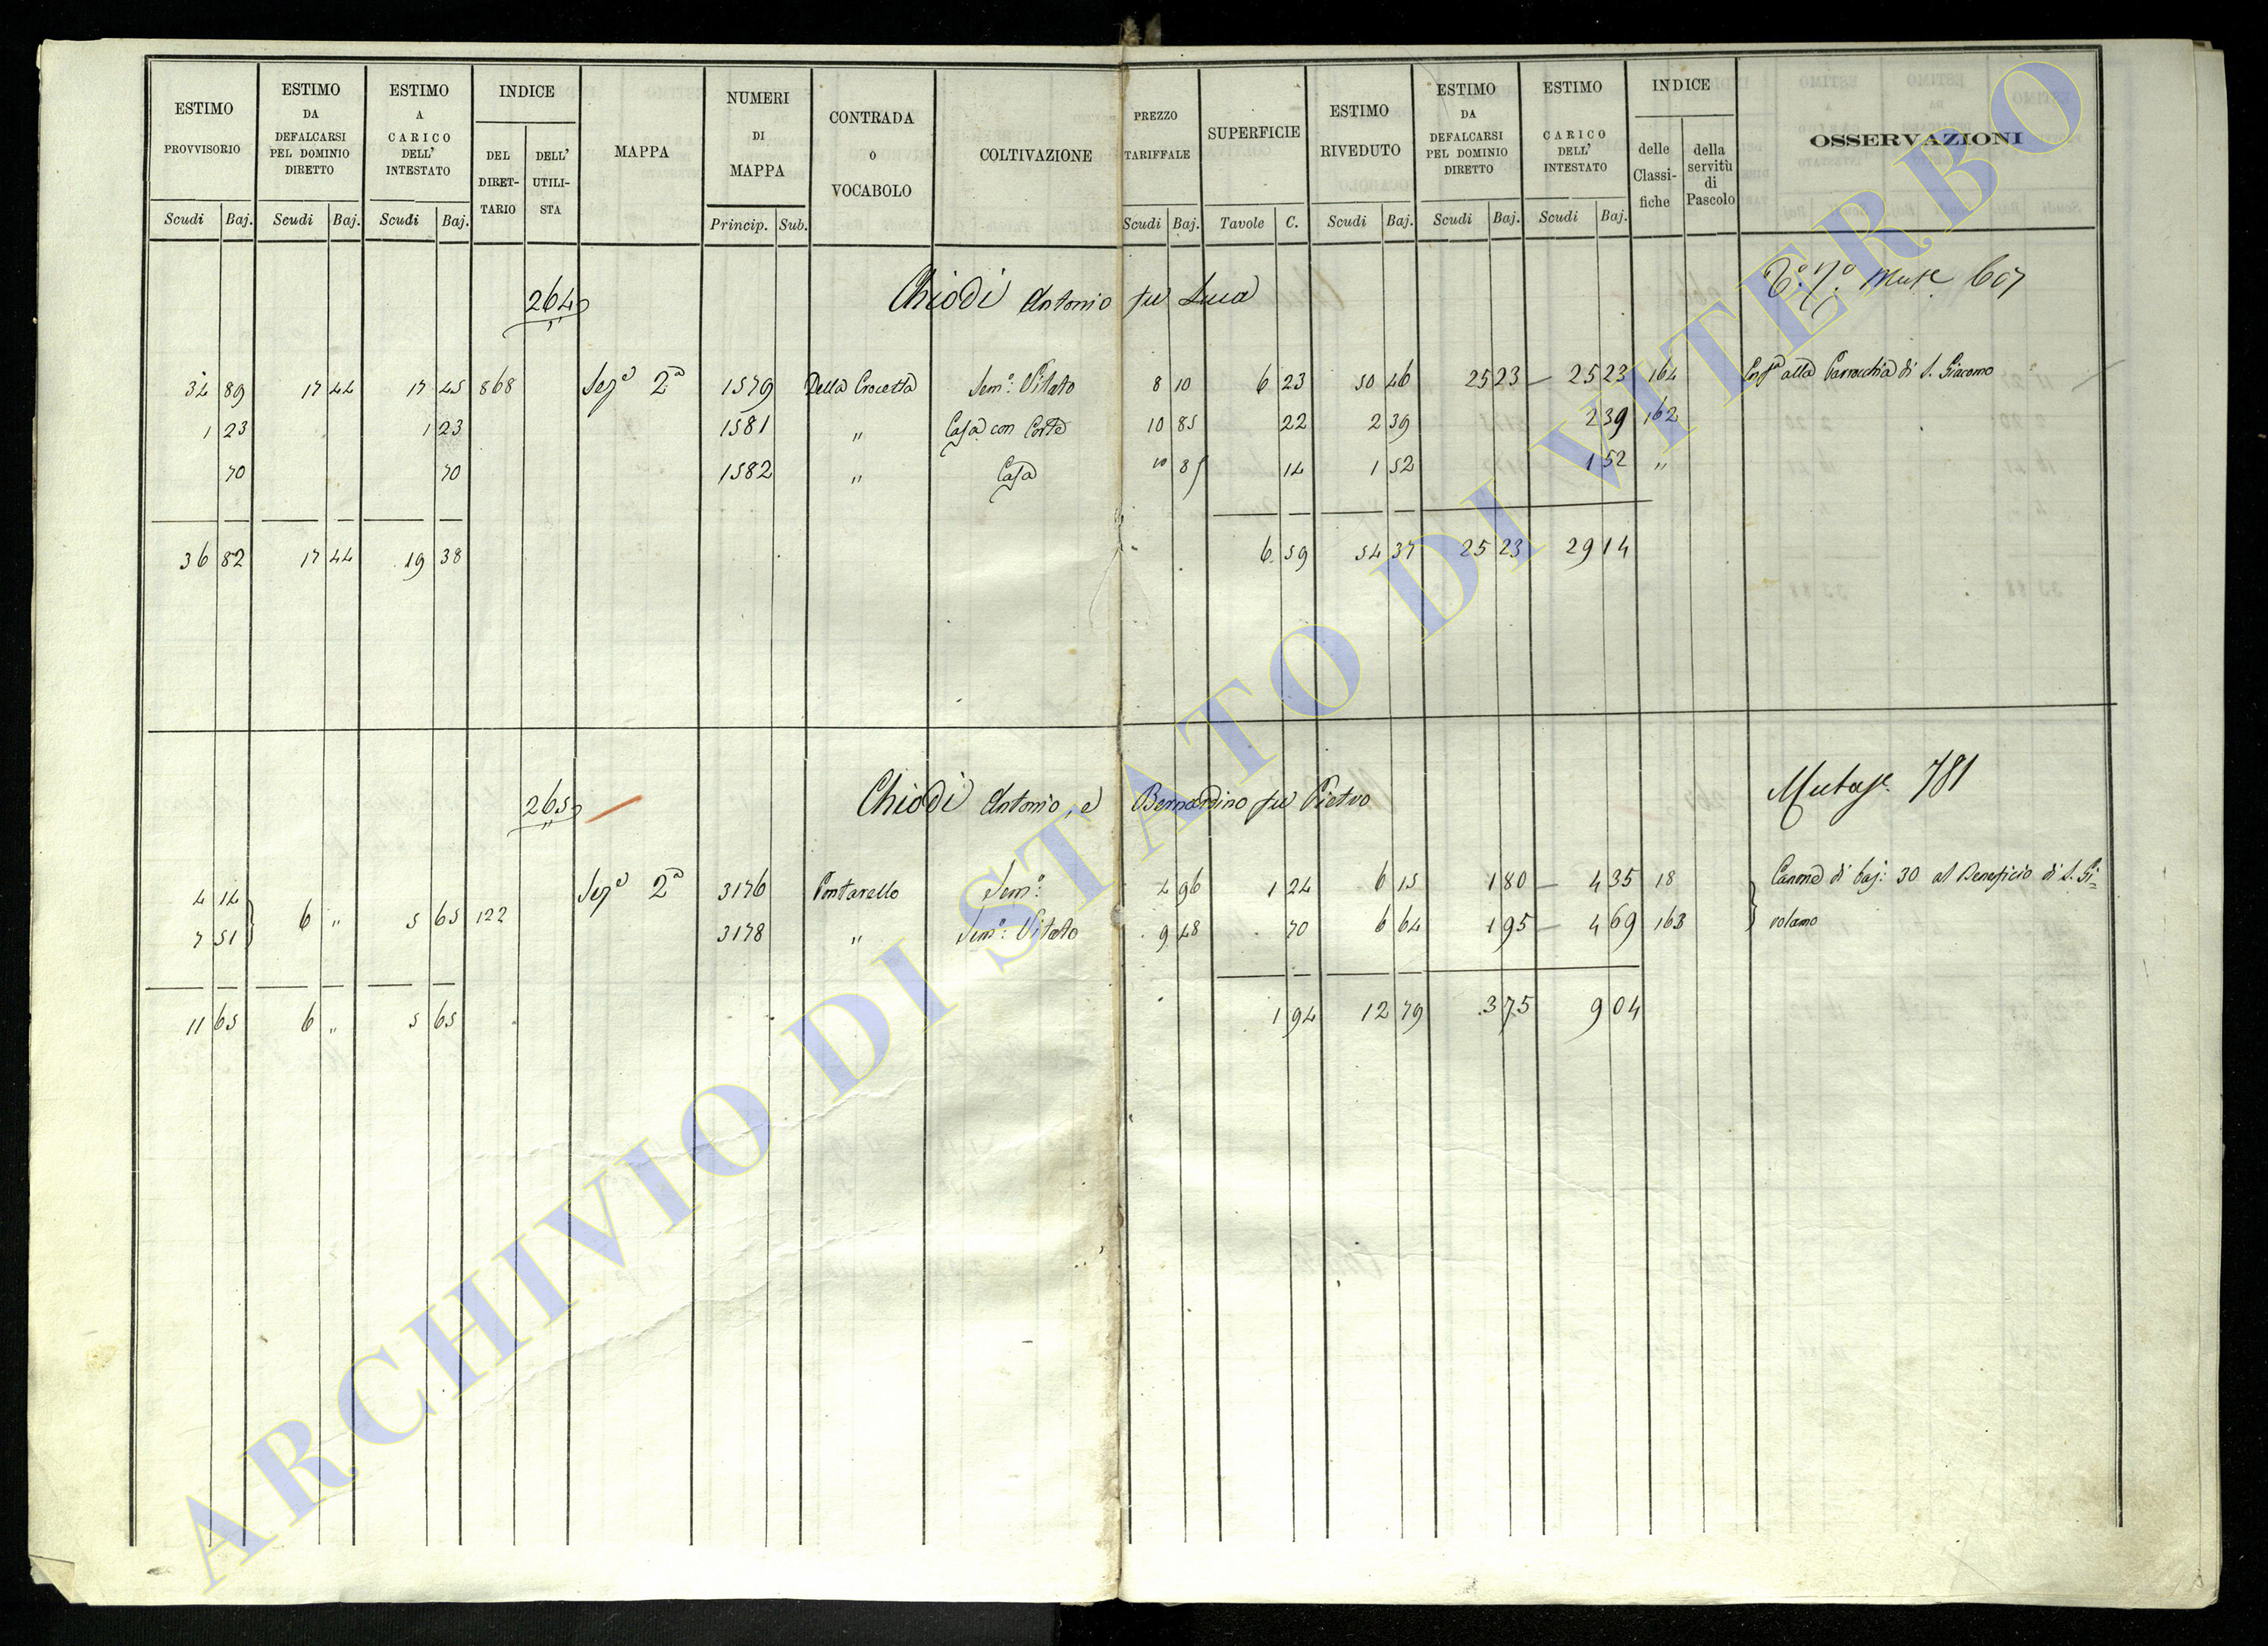 ESTIMO PROVVISORIO | ESTIMO DA DEFALCARSI PEL DOMINIO DIRETTO | ESTIMO A CARICO DELL' INTESTATO | INDICE | MAPPA | NUMERI DI MAPPA | CONTRADA O VOCABOLO | COLTIVAZIONE | PREZZO TARIFFALE | SUPERFICIE | ESTIMO RIVEDUTO | ESTIMO DA DEFALCARSI PEL DOMINIO DIRETTO | ESTIMO A CARICO DELL' INTESTATO | INDICE | OSSERVAZIONI
DEL DIRET-TARIO | DELL' UTILI-STA | delle Classi-fiche | della servitù di Pascolo
Scudi Baj. | Scudi Baj. | Scudi Baj. | Princip. Sub. | Scudi Baj. | Tavole C. | Scudi Baj. | Scudi Baj. | Scudi Baj.
264 Chiodi Antonio fu Luca 607
34 89 17 44 17 45 868 Sez.e 2a 1579 Della Crocetta Sem.o Vitato 8 10 6 23 50 46 25 23 — 25 23 164 alla Parrocchia di S. Giacomo
1 23 1 23 1581 " Casa con Corte 10 85 22 2 39 2 39 162
70 70 1582 " Casa 10 85 14 1 52 1 52 "
36 82 17 44 19 38 6 59 54 37 25 23 29 14
265 Chiodi Antonio, e Bernardino fu Pietro 781
4 14 Sez.e 2a 3176 Pontarello Sem.o 4 96 1 24 6 15 1 80 — 4 35 18 Canone di baj: 30 al Beneficio di S. Gi=
6 " 5 65 122
7 51 3178 " Sem.o Vitato 9 48 70 6 64 1 95 — 4 69 163 rolamo
11 65 6 " 5 65 1 94 12 79 3 75 9 04
ARCHIVIO DI STATO DI VITERBO